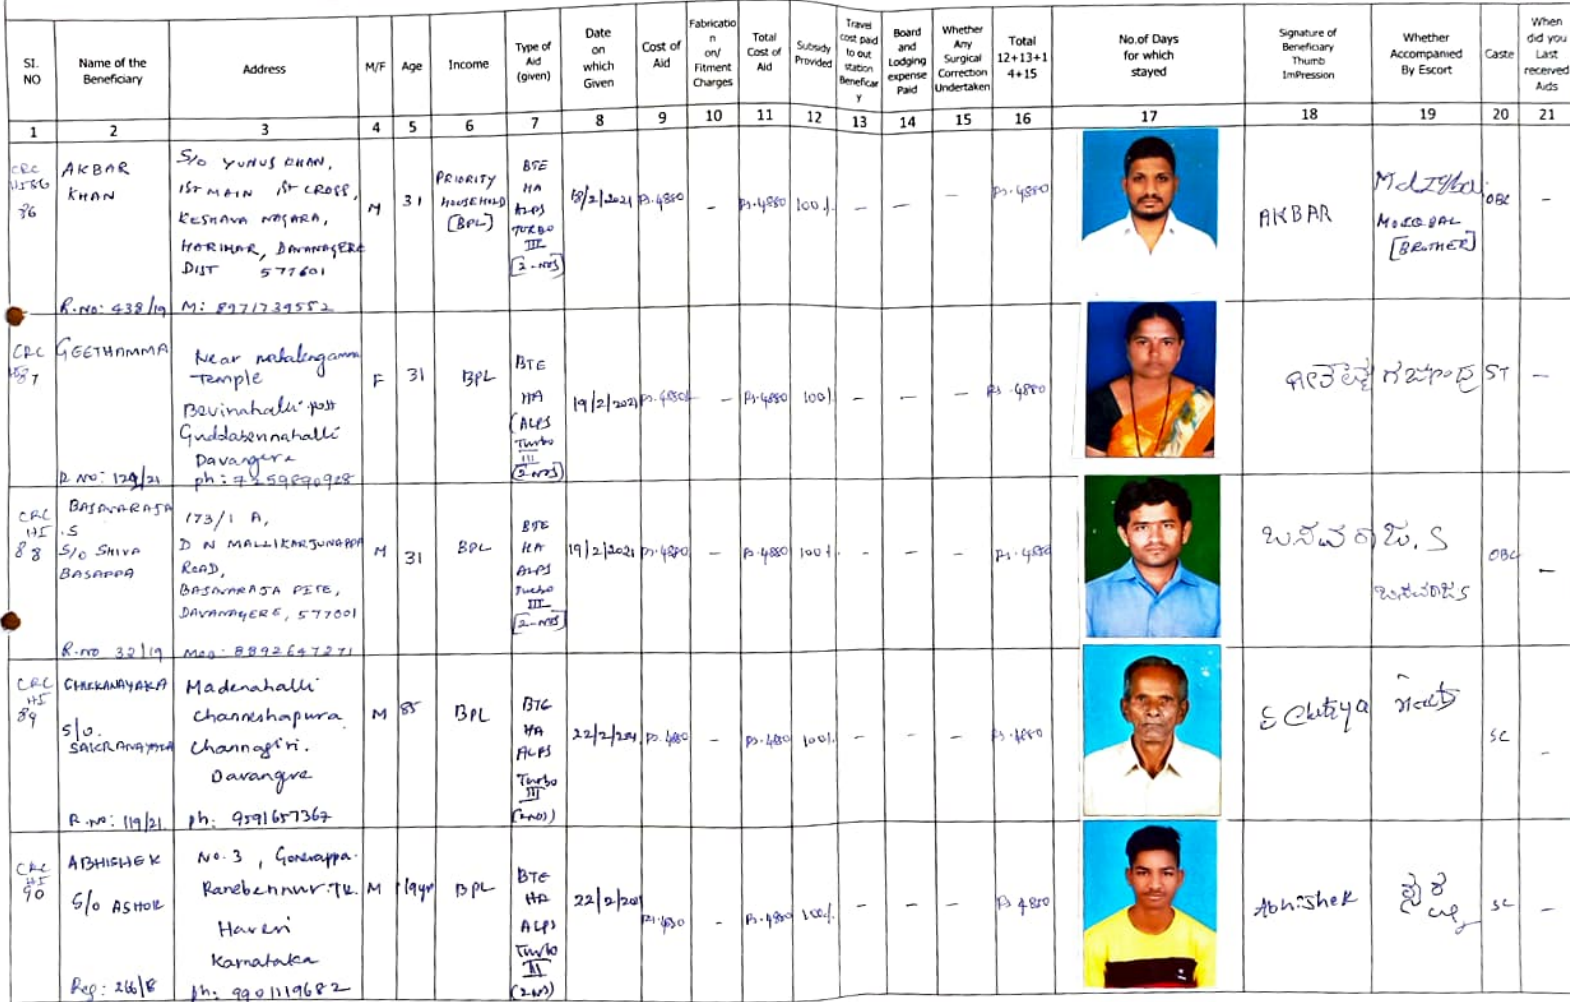 SI. NO
Name of the Beneficiary
Address
M/F
Age
Income
Type of Aid (given)
Date on which Given
Cost of Aid
Fabricatio n on/ Fitment Charges
Total Cost of Aid
Subsidy Provided
Travel cost paid to out station Beneficar y
Board and Lodging expense Paid
Whether Any Surgical Correction Undertaken
Total 12+13+1 4+15
No.of Days for which stayed
Signature of Beneficiary Thumb ImPression
Whether Accompanied By Escort
Caste
When did you Last received Aids
1 2 3 4 5 6 7 8 9 10 11 12 13 14 15 16 17 18 19 20 21
CRC
86
AKBAR
KHAN
R.No: 438/19
S/o YUNUS KHAN,
1ST MAIN 1st CROSS,
KESHAVA NAGARA,
HARIHAR, DAVANAGERE
DIST 577601
M: 8971739552
M
31
PRIORITY
HOUSEHOLD
[BPL]
BTE
HA
ALPS
TURBO
III
[2-NOS]
18/2/2021
Rs.4880
-
Rs.4880
100%
-
-
-
Rs.4880
AKBAR
[BROTHER]
OBC
-
CRC
87
GEETHAMMA
R NO: 129/21
Near
Temple
Bevinahalli post
Guddabennahalli
Davangere
F
31
BPL
BTE
HA
(ALPS
Turbo
III
(2 NOS)
19/2/2021
Rs.4880
-
Rs.4880
100%
-
-
-
Rs.4880
ST
-
CRC
HI
88
BASAVARAJA
.S
S/o SHIVA
BASAPPA
R.no 32/19
173/1 A,
D N MALLIKARJUNAPPA
ROAD,
BASAVARAJA PETE,
DAVANAGERE, 577001
Mob: 8892647271
M
31
BPL
BTE
HA
ALPS
Turbo
III
[2-NOS]
19/2/2021
Rs.4880
-
Rs.4880
100%
-
-
-
Rs.4880
ಬಸವರಾಜ.S
ಬಸವರಾಜ S
OBC
-
CRC
HI
89
CHIKKANAYAKA
S/o.
SAKRANAYAKA
R.no: 119/21
Madenahalli
Channeshapura
Channagiri.
Davangre
ph: 9591657367
M
85
BPL
BTE
HA
ALPS
Turbo
III
(2NOS)
22/2/2021
Rs.4880
-
Rs.4880
100%
-
-
-
Rs.4880
SC
-
CRC
HI
90
ABHISHEK
S/o ASHOK
Reg: 266/8
No. 3 ,
Ranebennur.Tk.
Haveri
Karnataka
ph: 9901119682
M
19yr
BPL
BTE
HA
ALPS
Turbo
III
(2NOS)
22/2/2021
Rs.4880
-
Rs.4880
100%
-
-
-
Rs 4880
Abhishek
SC
-